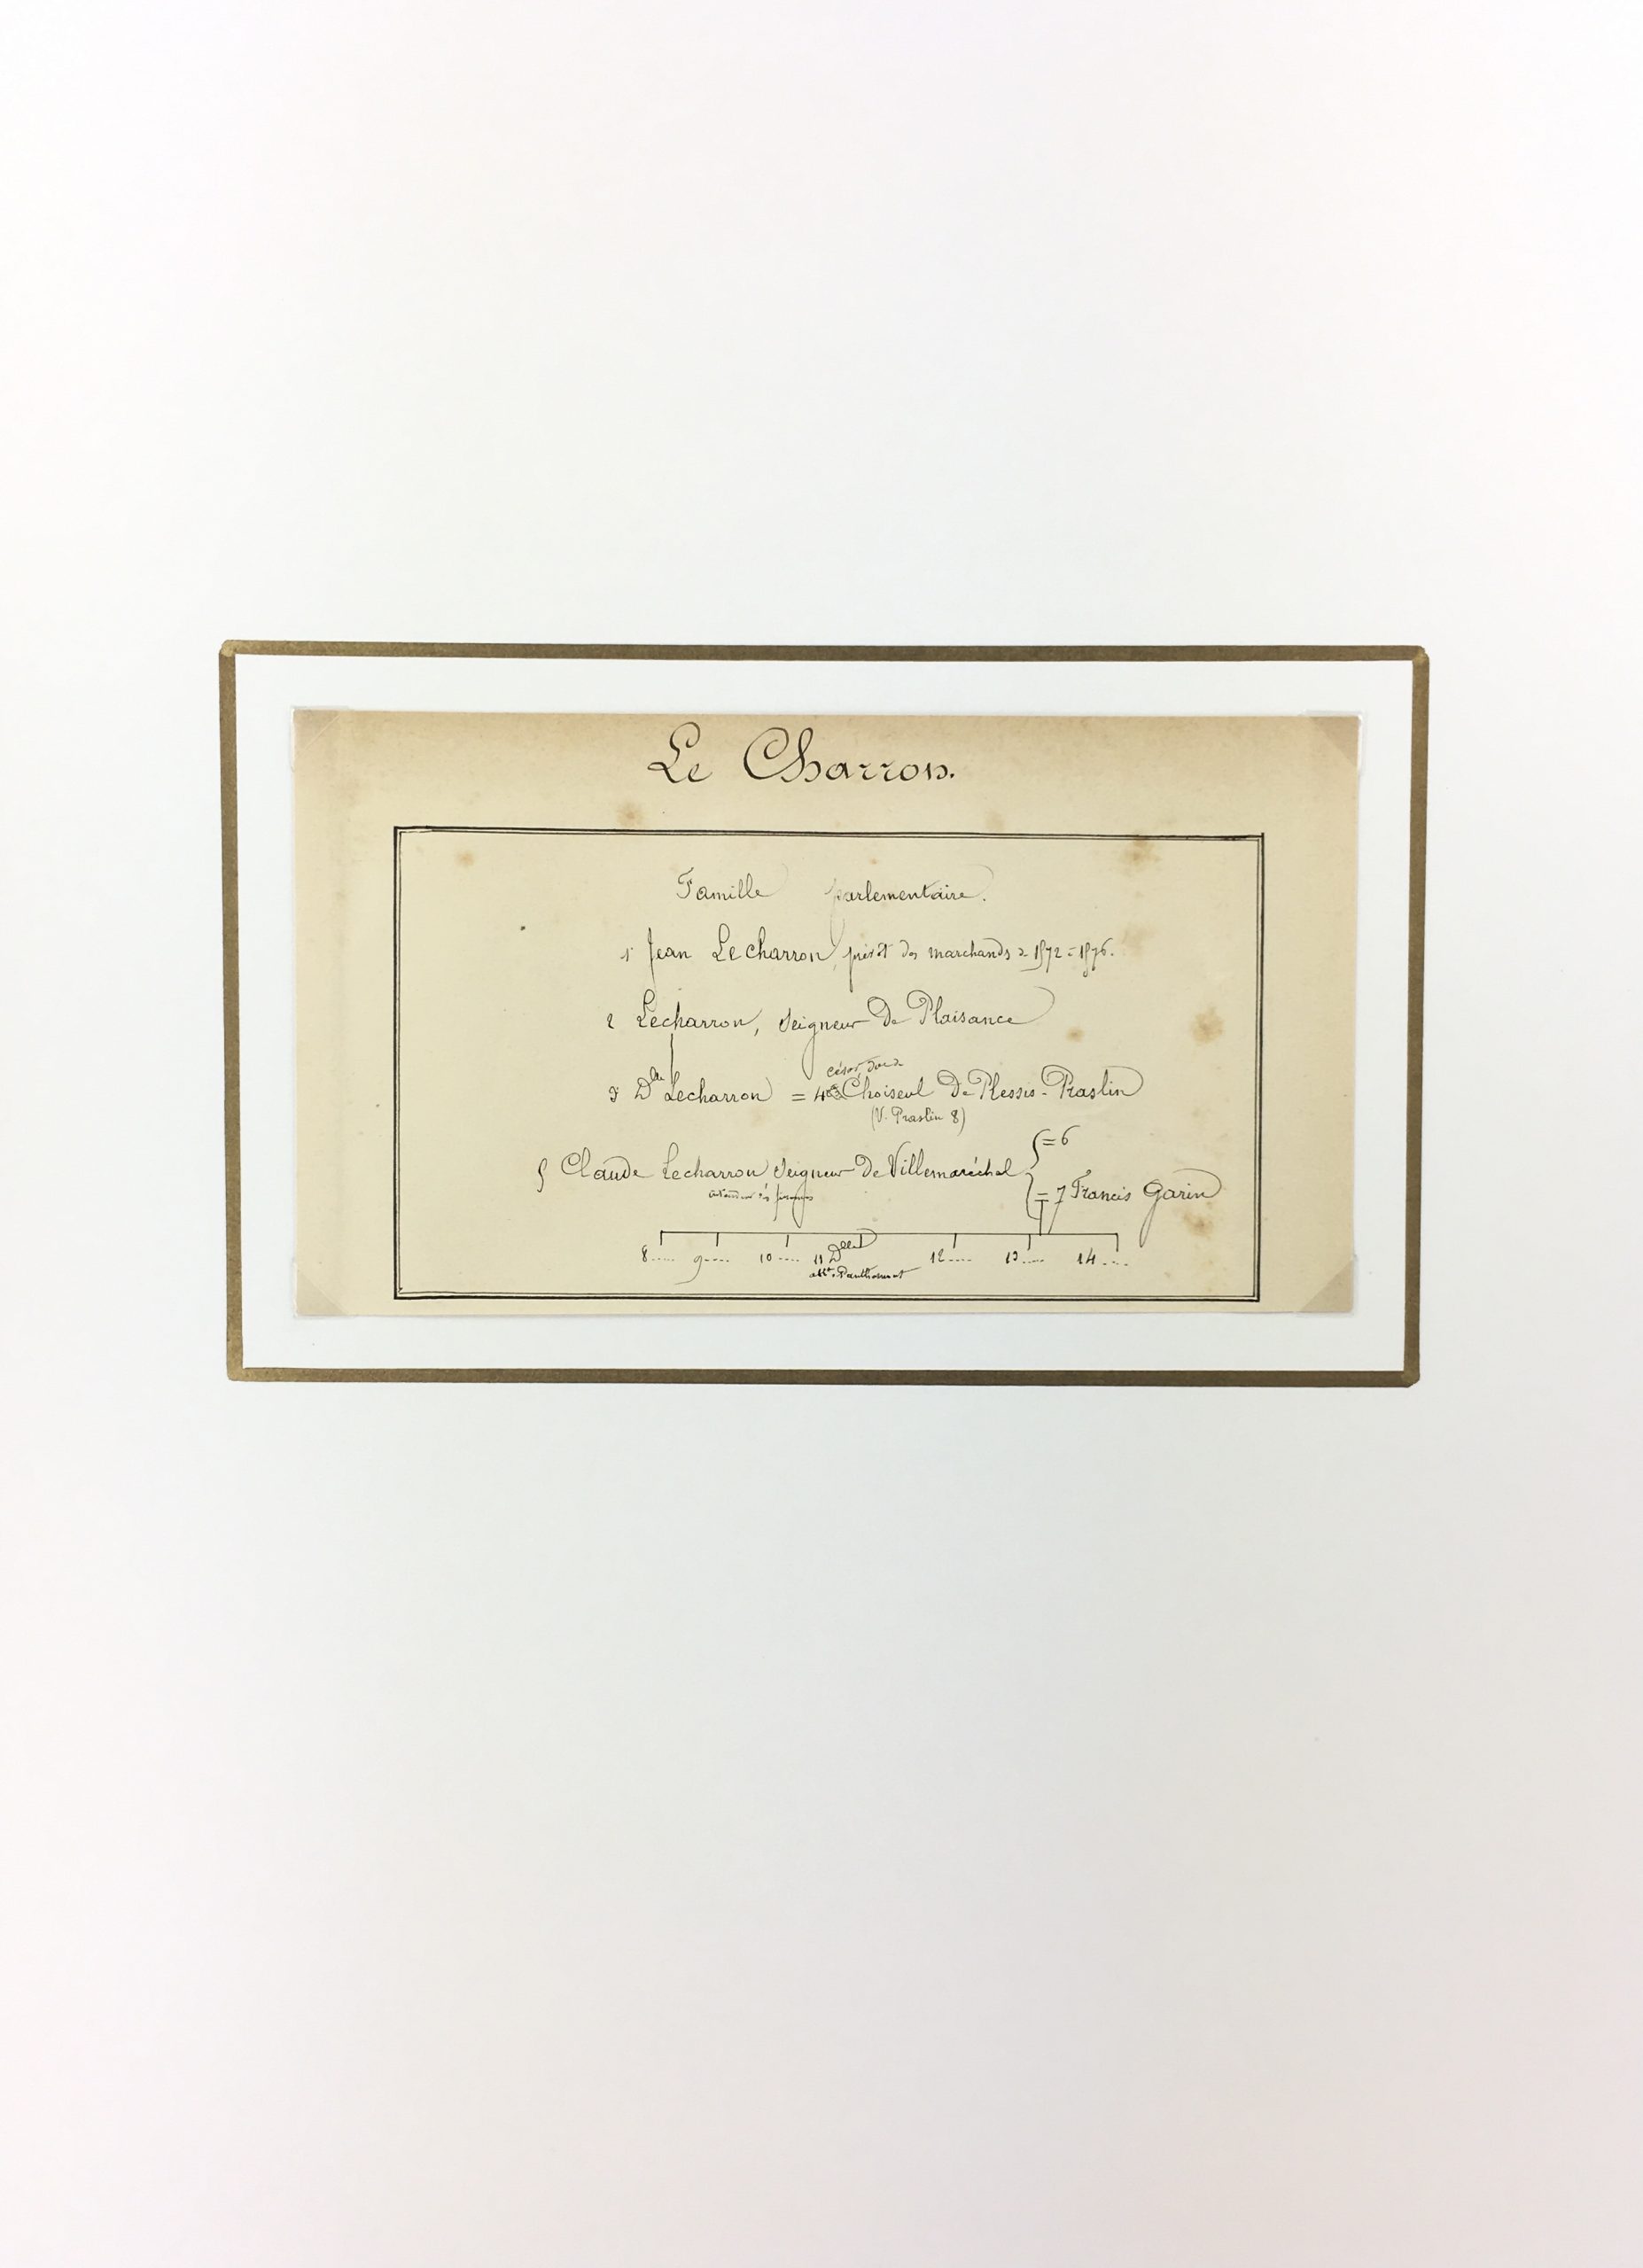 Le Charron.
Famille parlementaire.
1 Jean Lecharron, prévôt des marchands de 1572 à 1576.
2 Lecharron, Seigneur de Plaisance
César, duc de
3 Dlle Lecharron = 4 Choiseul de Plessis-Praslin
(V. Praslin 8)
{ = 6
5 Claude Lecharron Seigneur de Villemaréchal
= 7 Francis Garin
8..... 9..... 10..... 11 Dlle 12..... 13..... 14....